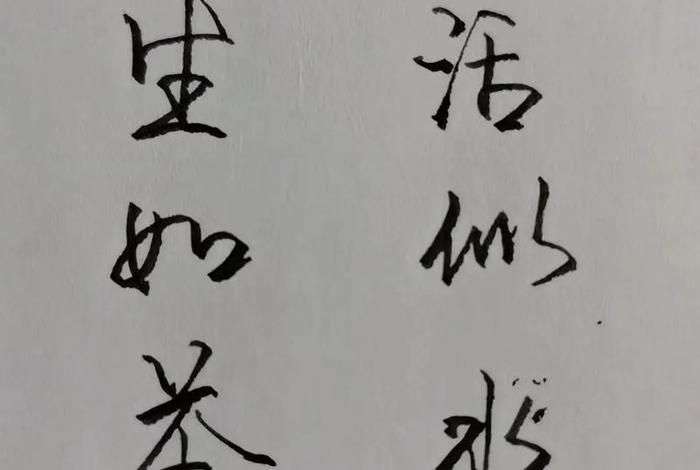 活似水
生如茶